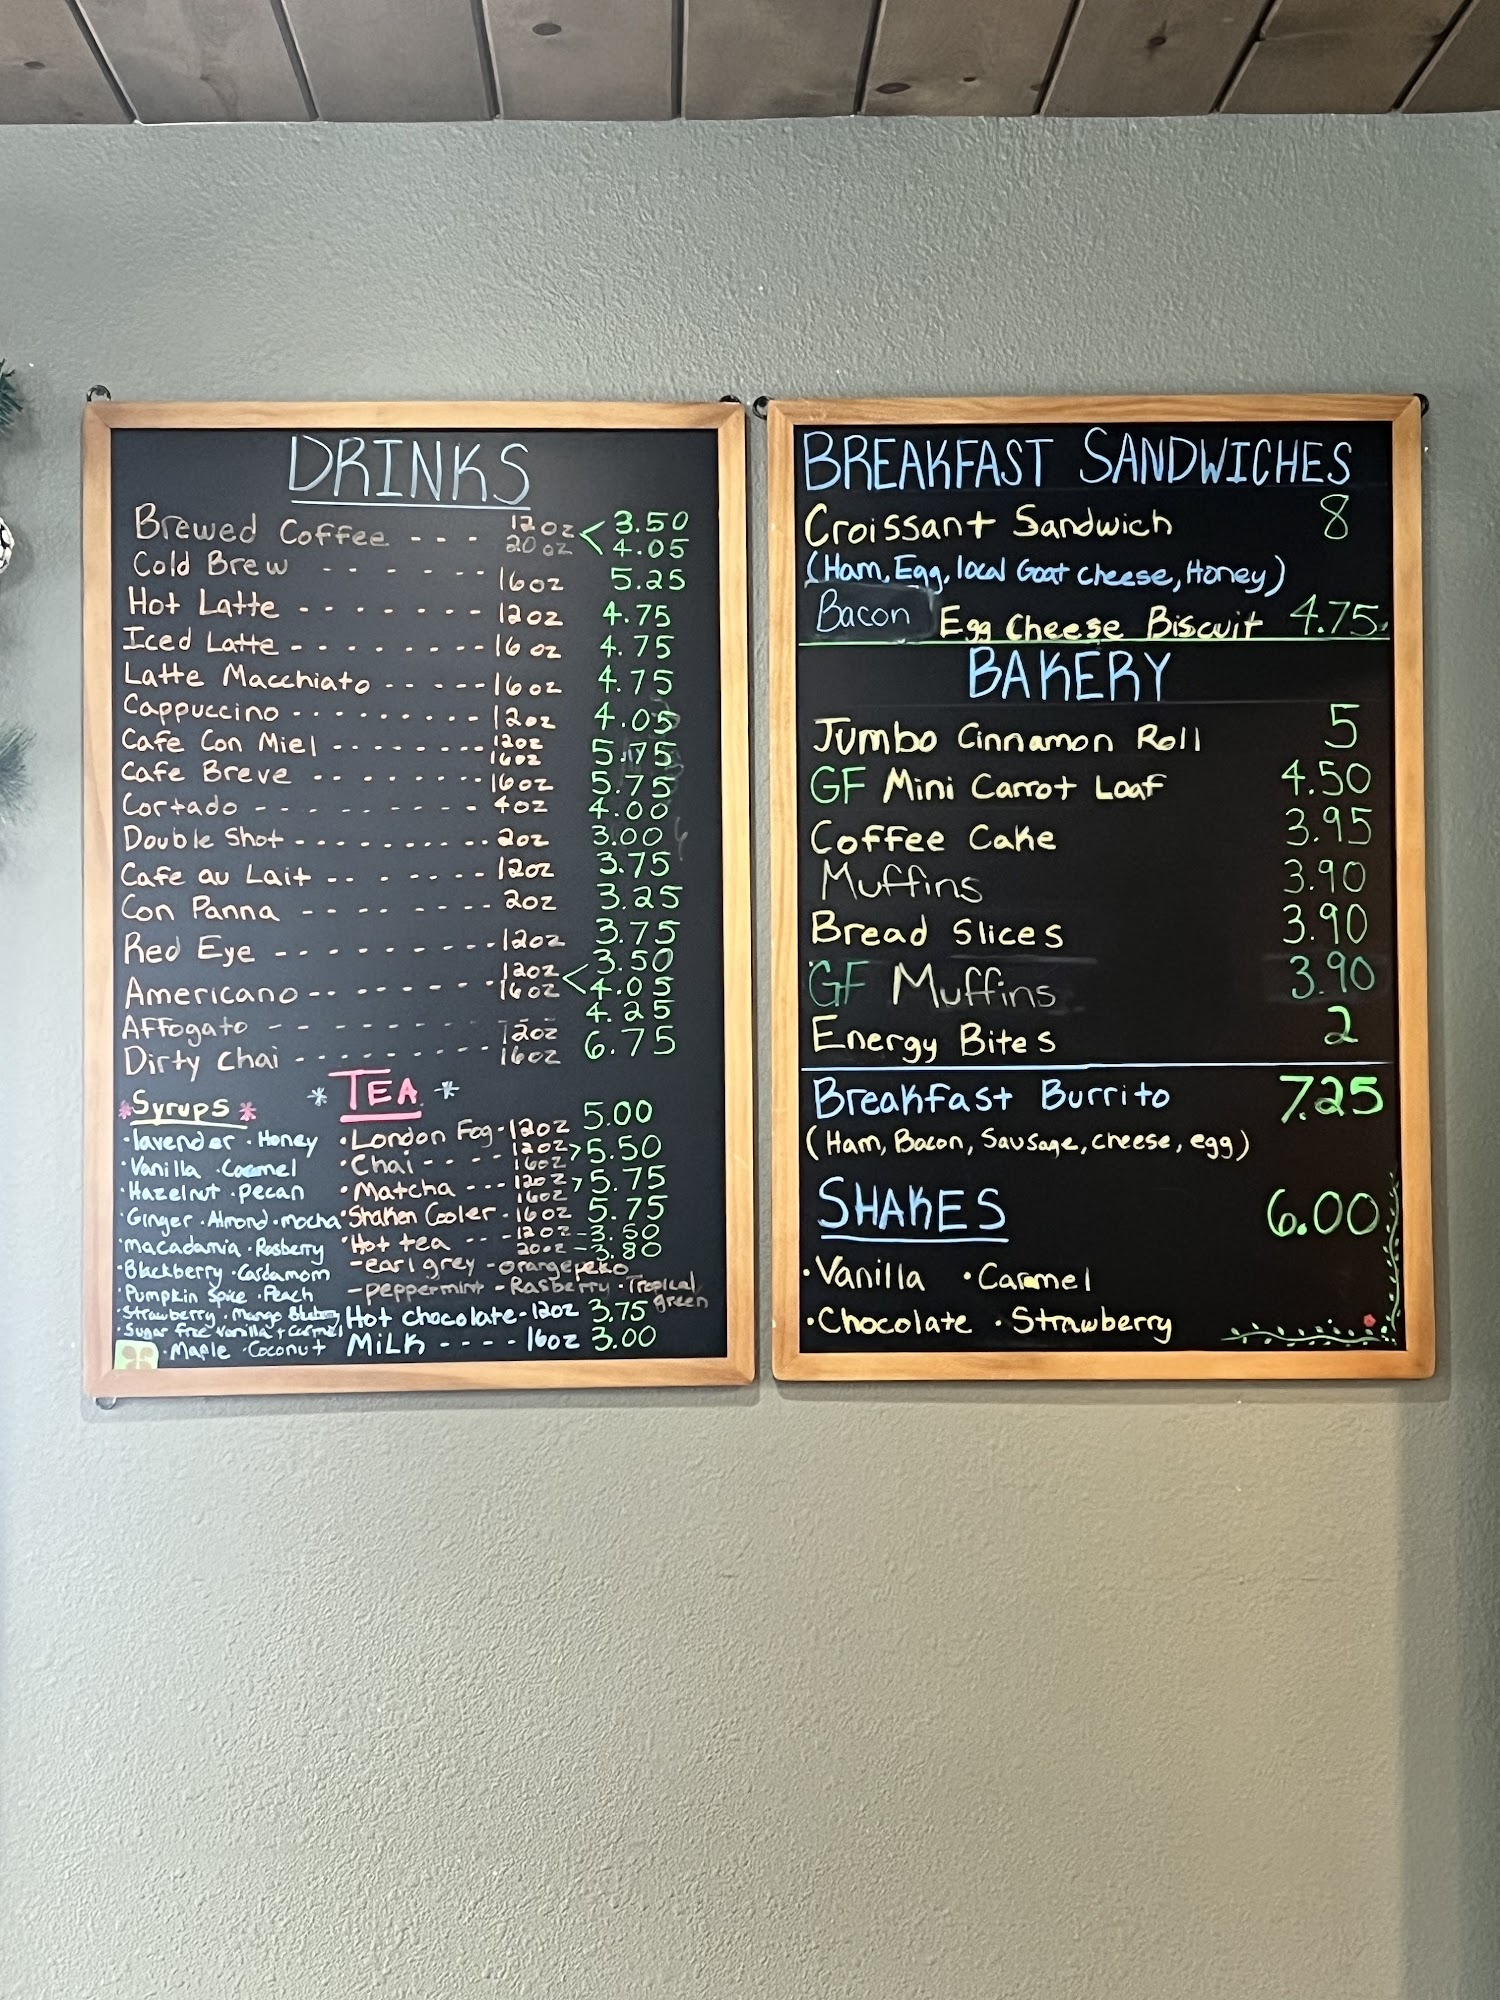 DRINKS
Brewed Coffee - - - 12oz < 3.50
20oz 4.05
Cold Brew - - - - - - 16oz 5.25
Hot Latte - - - - - - - 12oz 4.75
Iced Latte - - - - - - - - 16oz 4.75
Latte Macchiato - - - - - 16oz 4.75
Cappuccino - - - - - - - - - 12oz 4.05
Cafe Con Miel - - - - - - - 12oz 16oz 5.75
Cafe Breve - - - - - - - - 16oz 5.75
Cortado - - - - - - - - - 4oz 4.00
Double Shot - - - - - - - - - 2oz 3.00
Cafe au Lait - - - - - - - 12oz 3.75
Con Panna - - - - - - - - 2oz 3.25
Red Eye - - - - - - - - - - 12oz 3.75
Americano - - - - - - - - 12oz < 3.50
16oz 4.05
Affogato - - - - - - - - - 4.25
Dirty Chai - - - - - - - - - 12oz 16oz 6.75
* TEA *
*Syrups*
·lavender ·Honey
·Vanilla ·Caramel
·Hazelnut ·pecan
·Ginger ·Almond ·mocha
·macadamia ·Rasberry
·Blackberry ·Cardamom
·Pumpkin Spice ·Peach
·Strawberry ·Mango
·Sugar free vanilla + Carmel
·Maple ·Coconut
·London Fog - 12oz 5.00
·Chai - - - - 12oz 16oz > 5.50
·Matcha - - - 12oz 16oz > 5.75
·Shaken Cooler - 16oz 5.75
·Hot tea - - - 12oz - 3.50
20oz - 3.80
-earl grey -orange peko
-peppermint -Rasberry ·Tropical green
Hot chocolate - 12oz 3.75
MiLK - - - - 16oz 3.00
BREAKFAST SANDWICHES
Croissant Sandwich 8
(Ham, Egg, local Goat cheese, Honey)
Bacon Egg Cheese Biscuit 4.75
BAKERY
Jumbo Cinnamon Roll 5
GF Mini Carrot Loaf 4.50
Coffee Cake 3.95
Muffins 3.90
Bread Slices 3.90
GF Muffins 3.90
Energy Bites 2
Breakfast Burrito 7.25
(Ham, Bacon, Sausage, cheese, egg)
SHAKES 6.00
·Vanilla ·Carmel
·Chocolate ·Strawberry